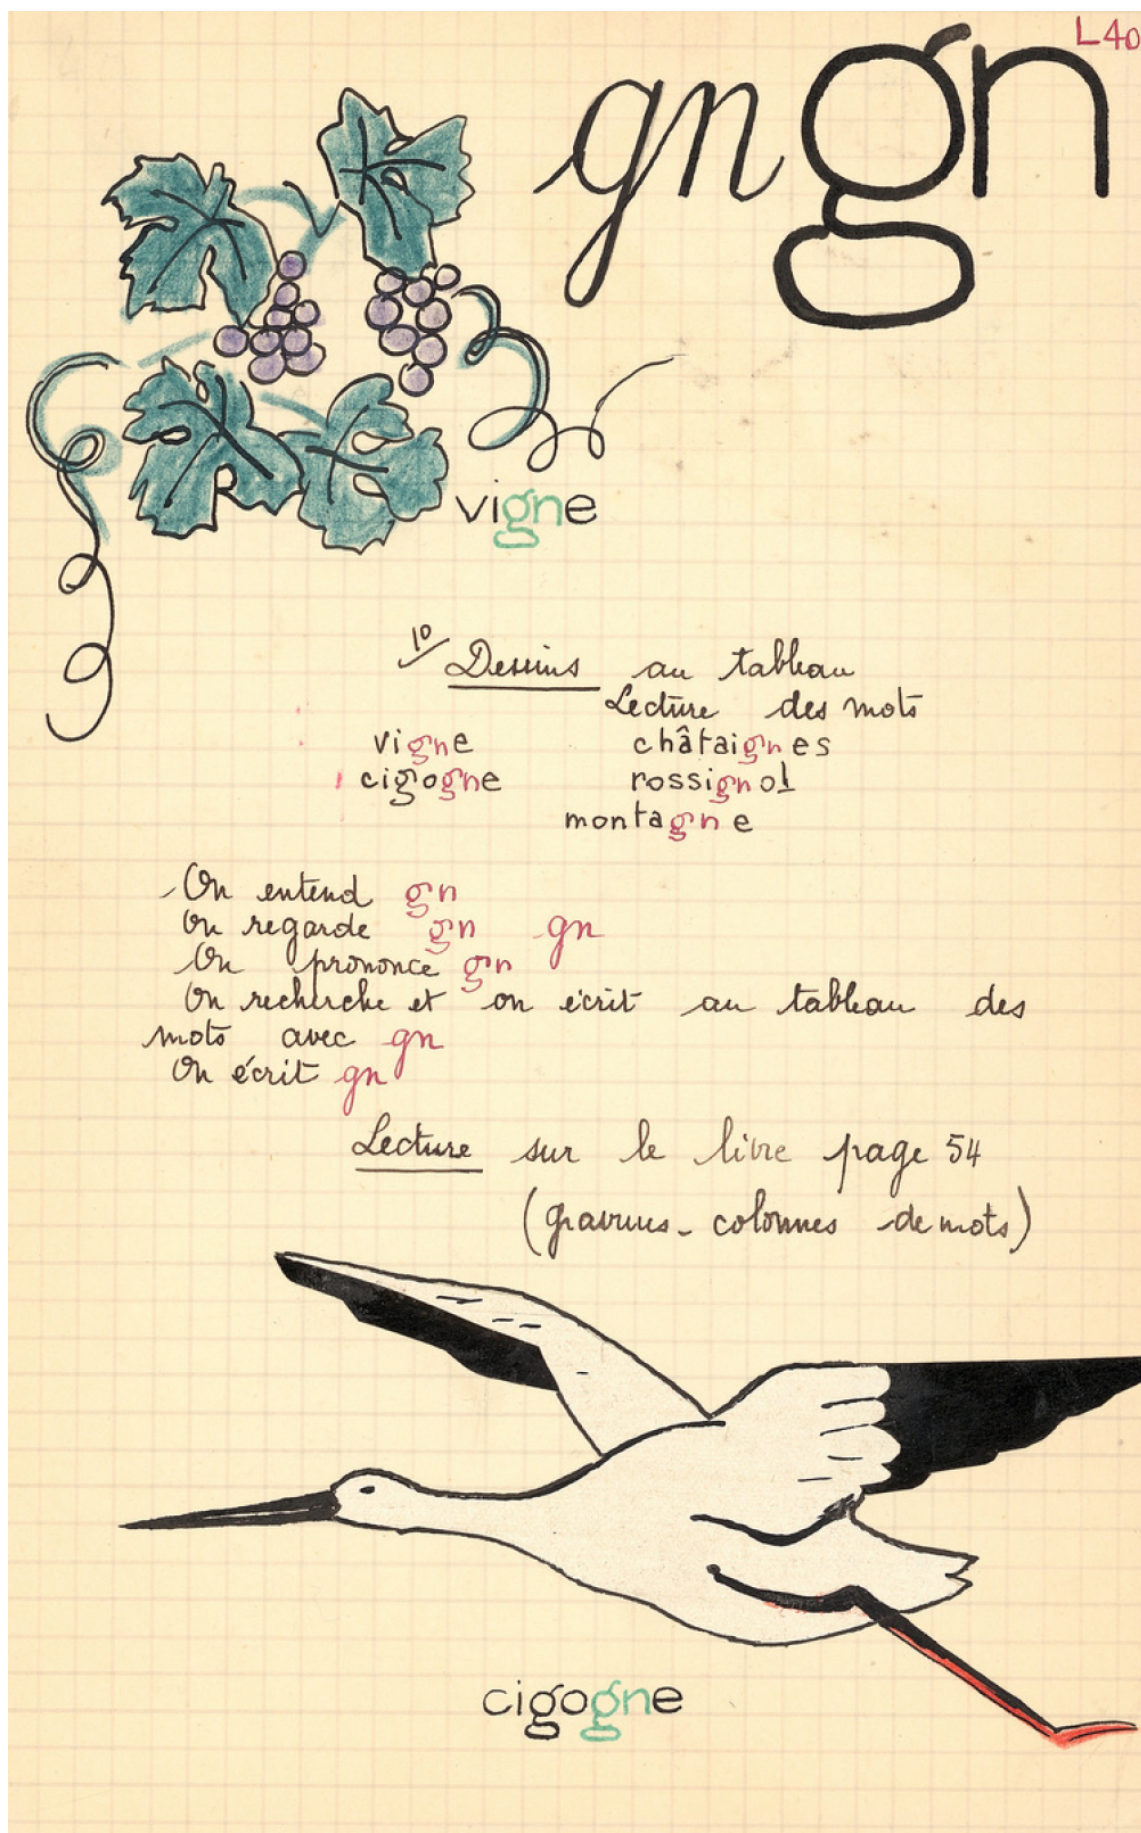 L40
gn gn
vigne
1º/ Dessins au tableau
Lecture des mots
vigne châtaignes
cigogne rossignol
montagne
On entend gn
On regarde gn gn
On prononce gn
On recherche et on écrit au tableau des
mots avec gn
On écrit gn
Lecture sur le livre page 54
(gravures - colonnes de mots)
cigogne